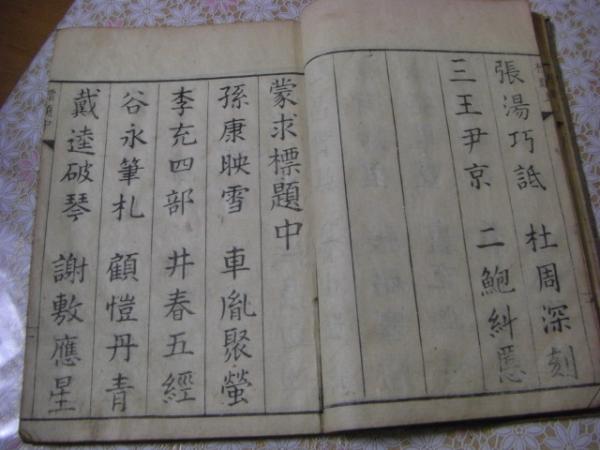 張湯巧詆 杜周深刻
三王尹京 二鮑糾慝
蒙求標題中
孫康映雪 車胤聚螢
李充四部 井春五經
谷永筆札 顧愷丹青
戴逵破琴 謝敷應星